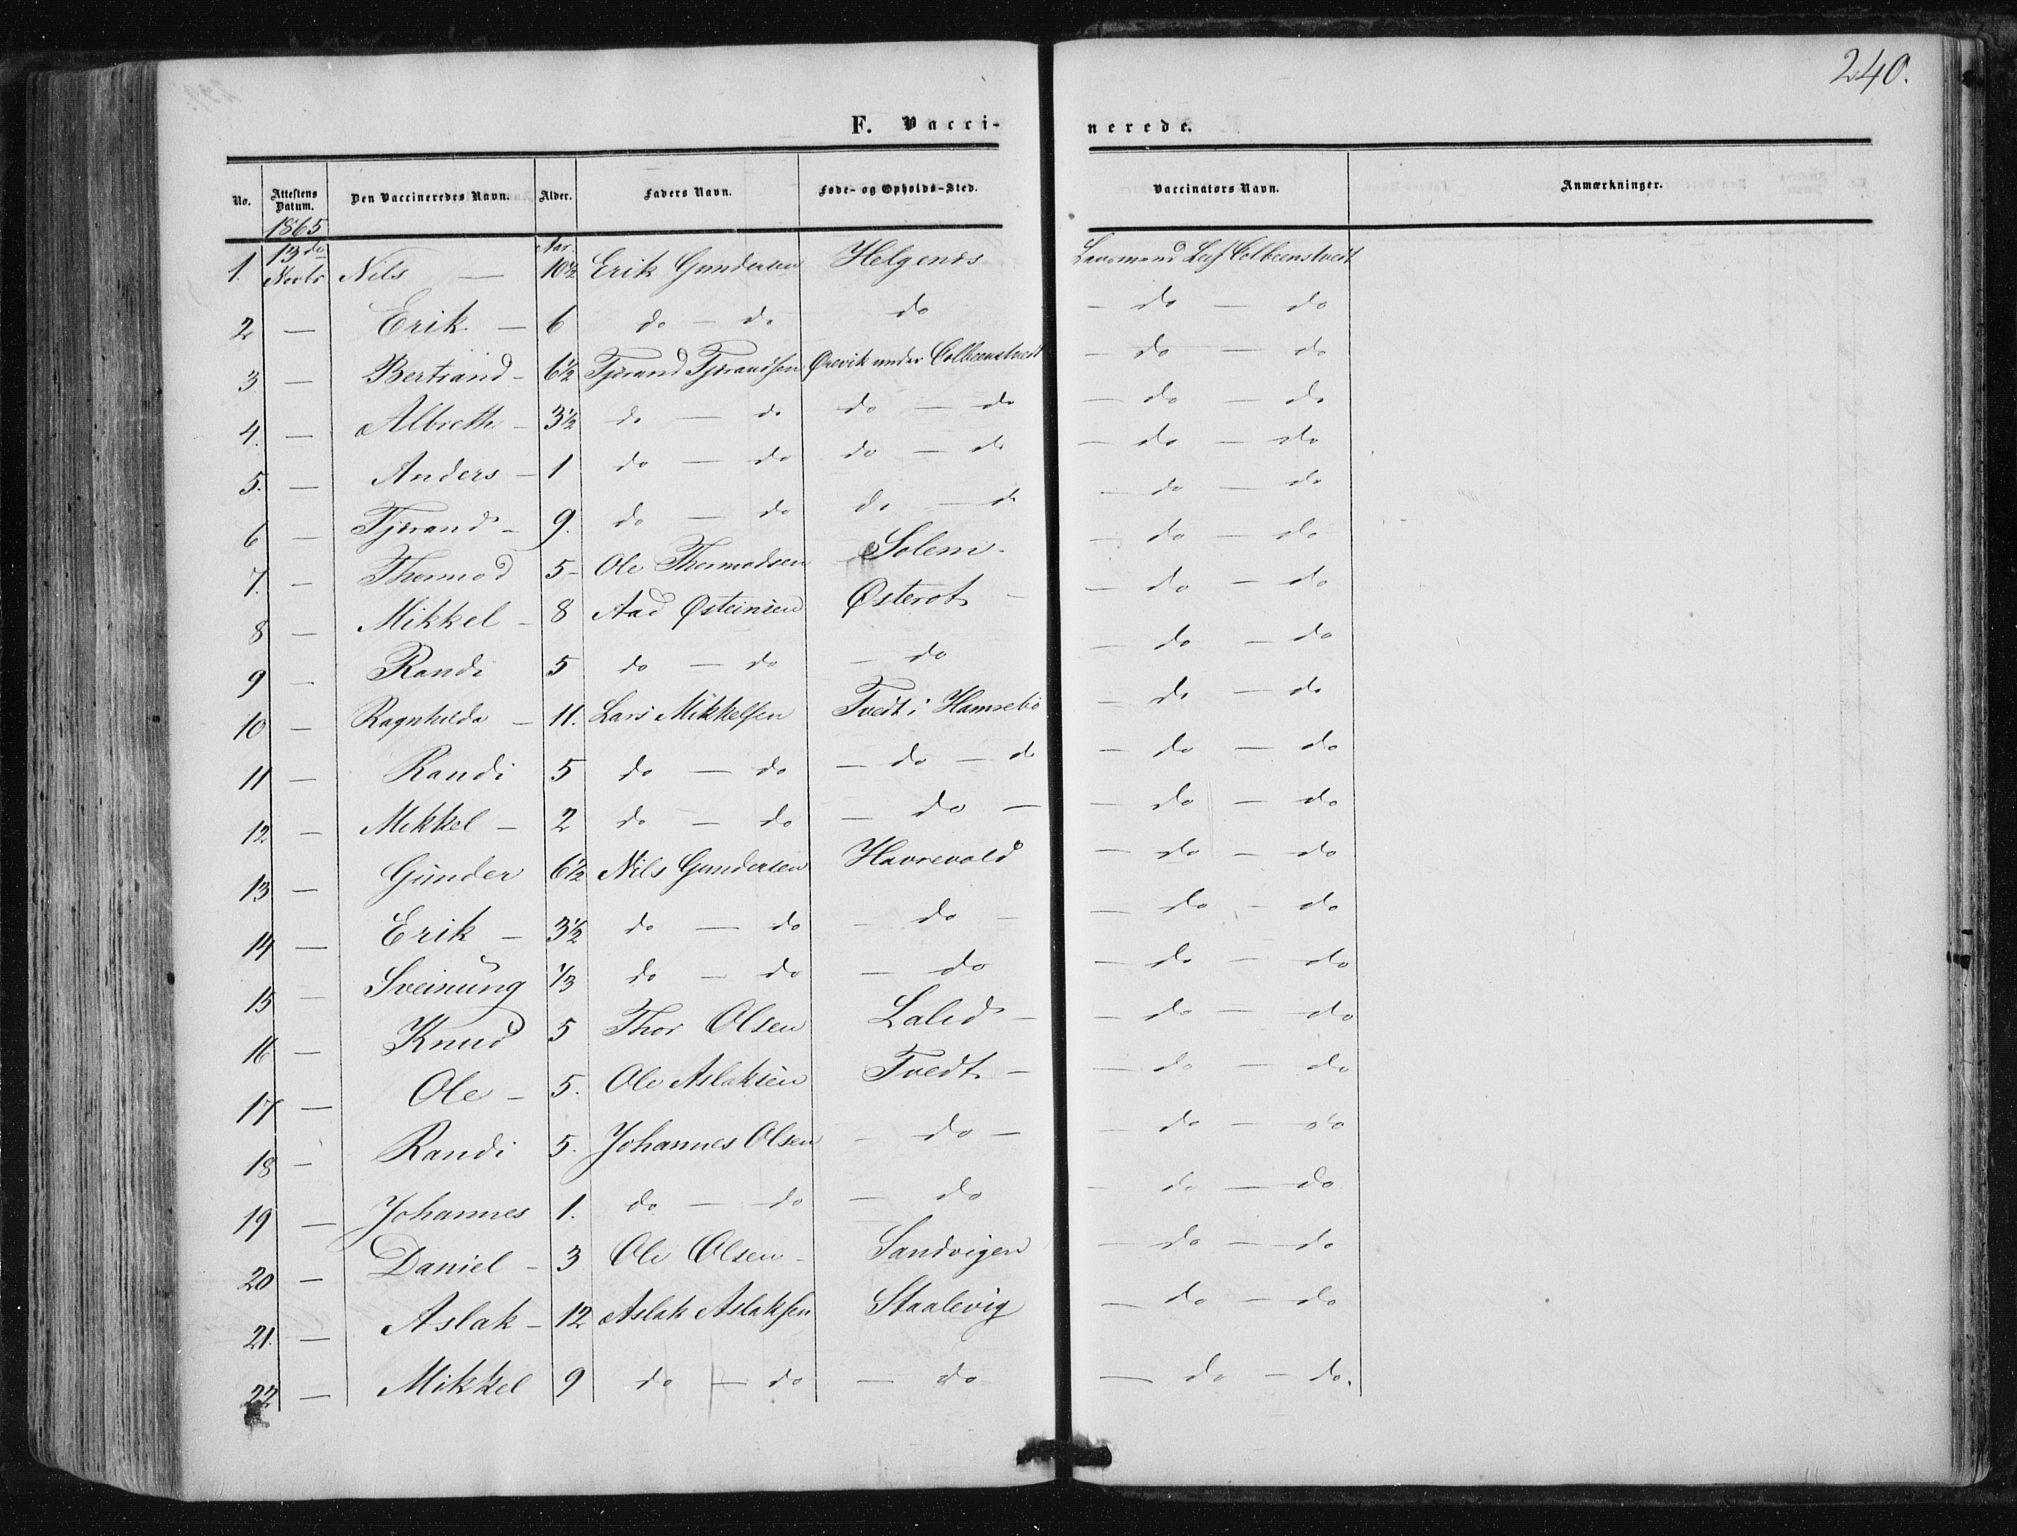 240.
F. Vacci- nerede.
No. Attestens Datum. Den Vaccineredes Navn. Alder. Faders Navn. Føde- og Opholds-Sted. Vaccinators Navn. Anmærkninger.
1865
1. 13de Novbr Nils — Aar 10½ Erik Gundersen Helgenes Lensmand Leif Colbeenstvedt
2 — Erik — 6 do — do do — do — do
3 — Bertrand — 6½ Tjerand Tjerandsen Qvevik under Colbeenstvedt — do — do
4. — Albreth — 3½ do — do do — do — do — do
5. — Anders — 1 do — do do — do — do — do
6 — Tjerand — 9. do — do do — do — do — do
7. — Thormod 5 — Ole Thormodsen Solem — do — do
8 — Mikkel — 8 Aad Østeinsen Østerot — — do — do
9 — Randi 5 do — do — do — do — do
10 — Ragnhilda — 11. Lars Mikkelsen Tvedt i Hamrebø — do — do
11 — Randi 5 do — do — do — do — do — do
12 — Mikkel — 2 do — do — do — — do — do
13 — Gunder 6½ Nils Gundersen Havrevold — do — do
14 — Erik — 3½ do — do — do — — do — do
15 — Sveinung ⅓ do — do — do — do — do
16 — Knud 5 Thor Olsen Lalid — — do — do
17 — Ole — 5. Ole Aslaksen Tvedt — — do — do
18 — Randi 5. Johannes Olsen — do — — do — do
19 — Johannes 1. do — do — do — do — do
20 — Daniel — 3 Ole Olsen — Sandvigen — do — do
21. — Aslak — 12 Aslak Aslaksen Staalevig — do — do
22 — Mikkel 9 do — do — do — do — do.